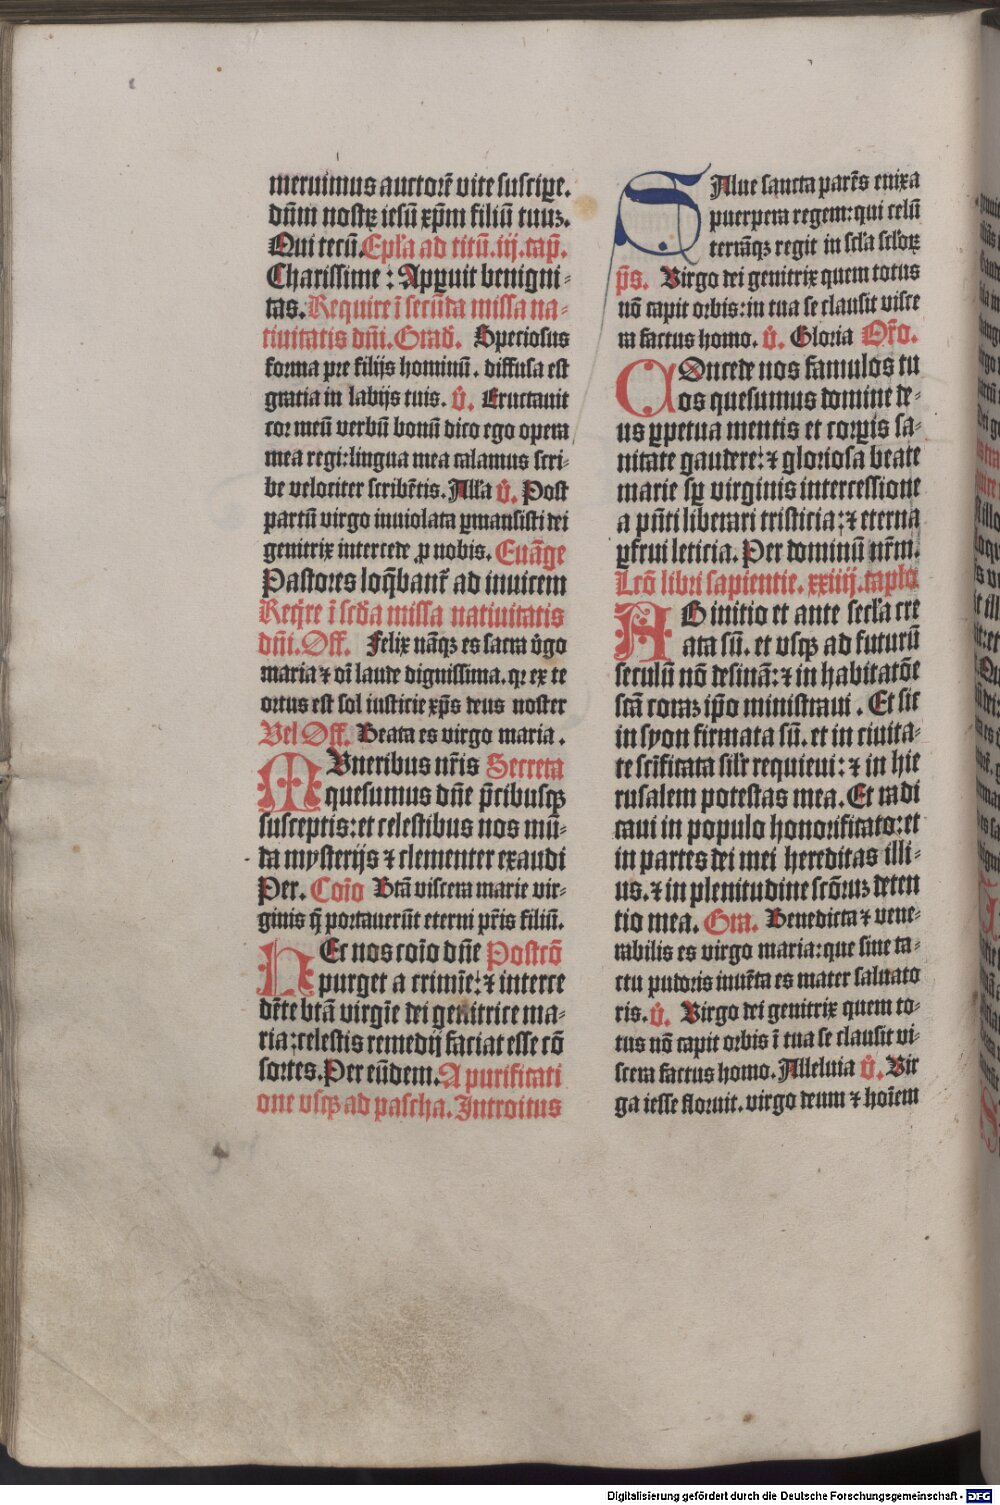 meruimus auctorē vite suscipe.
dūm nostrꝫ iesū xp̄m filiū tuuꝫ.
Qui tecū. Ep̄la ad titū. iij. cap̄.
Charissime : Apꝑuit benigni-
tas. Require ī secūda missa na-
tiuitatis dn̄i. Grad̄. Speciosus
forma pre filijs hominū. diffusa est
gratia in labijs tuis. v̊. Eructauit
cor meū verbū bonū dico ego opera
mea regi: lingua mea calamus scri-
be velociter scribētis. All'a v̊. Post
partū virgo inuiolata ꝑmansisti dei
genitrix intercede ꝓ nobis. Euāge
Pastores loq̄bant᷑ ad inuicem
Req̄re ī scd̄a missa natiuitatis
dn̄i. Off. Felix nāqꝫ es sacra v̊go
maria ⁊ oī laude dignissima. qꝛ ex te
ortus est sol iusticie xp̄s deus noster
Vel Off. Beata es virgo maria.
MVneribus nr̄is Secreta
quesumus dn̄e p̄cibusqꝫ
susceptis: et celestibus nos mū-
da mysterijs ⁊ clementer exaudi
Per. Coīo Btā viscera marie vir-
ginis q̄ portauerūt eterni pr̄is filiū.
HEc nos coīo dn̄e Postcō
purget a crimīe: ⁊ interce
dēte btā virgīe dei genitrice ma-
ria: celestis remedij faciat esse cō
sortes. Per eūdem. A purificati
one vsqꝫ ad pascha. Introitus
SAlue sancta parēs enixa
puerpera regem: qui celū
terrāqꝫ regit in scl'a scl'oꝝ
p̄s. Virgo dei genitrix quem totus
nō capit orbis: in tua se clausit visce
ra factus homo. v̊. Gloria Or̄o.
COncede nos famulos tu
os quesumus domine de-
us ꝑpetua mentis et corꝑis sa-
nitate gaudere: ⁊ gloriosa beate
marie sꝑ virginis intercessione
a pn̄ti liberari tristicia: ⁊ eterna
ꝑfrui leticia. Per dominū nr̄m.
Lcō libri sapientie. xxiiij. caplo
AB initio et ante secl'a cre
ata sū. et vsqꝫ ad futurū
seculū nō desinā: ⁊ in habitatōe
sctā coraꝫ ip̄o ministraui. Et sic
in syon firmata sū. et in ciuita-
te scīficata sil'r requieui: ⁊ in hie
rusalem potestas mea. Et radi
caui in populo honorificato: et
in partes dei mei hereditas illi-
us. ⁊ in plenitudine scōruꝫ deten
tio mea. Gra. Benedicta ⁊ vene-
rabilis es virgo maria: que sine ta-
ctu pudoris inuēta es mater saluato
ris. v̊. Virgo dei genitrix quem to-
tus nō capit orbis ī tua se clausit vi-
scera factus homo. Alleluia v̊. Vir
ga iesse floruit. virgo deum ⁊ hoīem
Digitalisierung gefördert durch die Deutsche Forschungsgemeinschaft - DFG